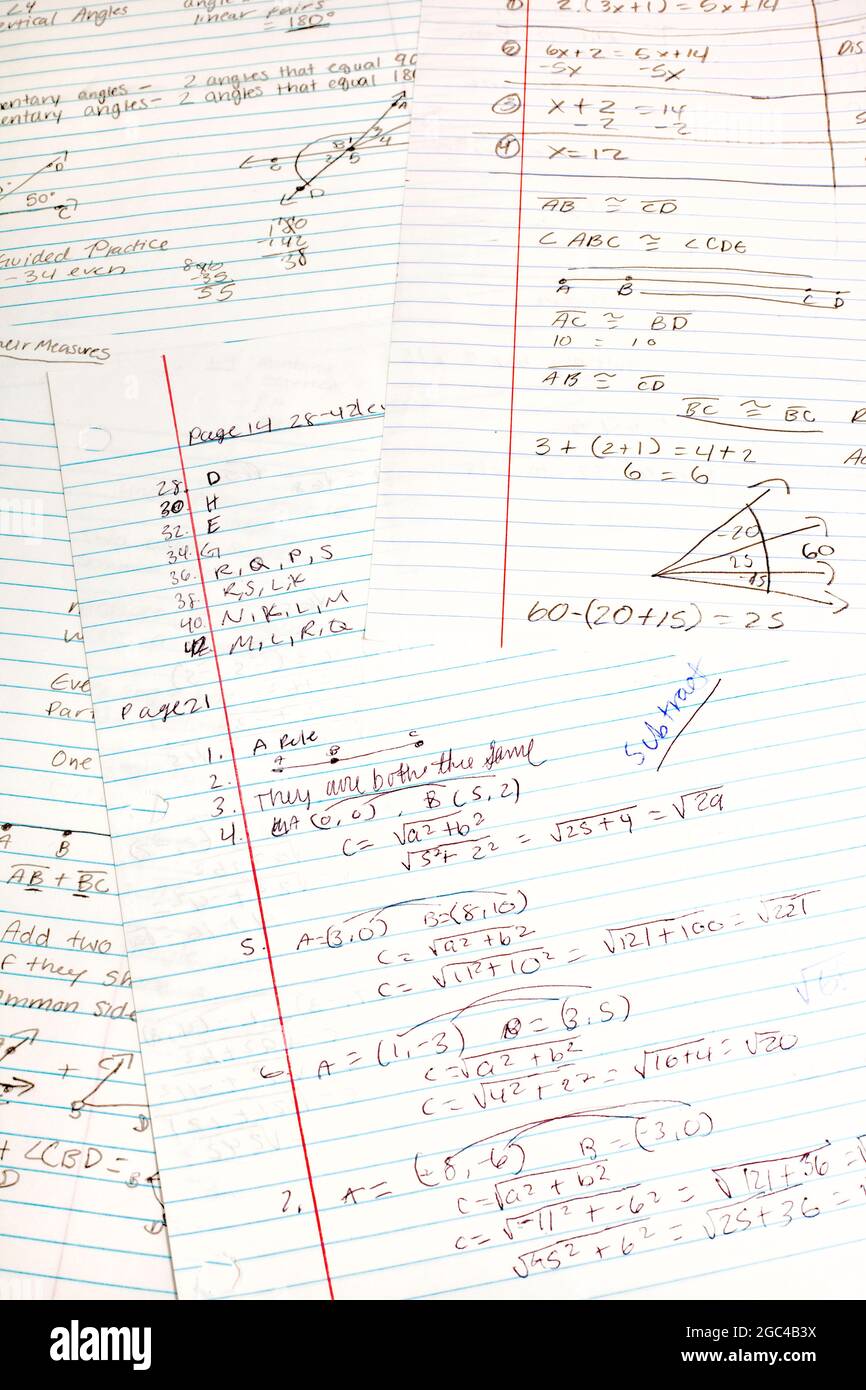 vertical Angles
linear pairs
= 180°
entary angles - 2 angles that equal 90
entary angles - 2 angles that equal 180
A
B 1 3
2 5 4
C
D
D
50°
C
Guided Practice
-34 even
180
-142
38
-35
55
heir Measures
① 2.(3x+1) = 5x+14
② 6x+2 = 5x+14
-5x -5x
Dis
③ x+2 = 14
-2 -2
④ x=12
AB ≅ CD
∠ABC ≅ ∠CDE
A B C D
AC ≅ BD
10 = 10
AB ≅ CD
BC ≅ BC
3 + (2+1) = 4+2
6 = 6
-20
25
-15
60
60-(20+15) = 25
Page 14 28-42
28. D
30. H
32. E
34. G
36. R, Q, P, S
38. R, S, L, K
40. N, K, L, M
42. M, L, R, Q
Page 21
subtract
1. A Rule
2. A B C
3. They are both the same
4. A (0,0), B (5,2)
c = √a²+b²
√5²+2² = √25+4 = √29
5. A=(3,0) B=(8,10)
c = √a²+b²
c = √11²+10² = √121+100 = √221
6. A = (1,-3) B = (3,5)
c=√a²+b²
c = √4²+2² = √16+4 = √20
7. A = (-8,-6) B = (-3,0)
c=√a²+b²
c=√-11²+-6² = √121+36 =
√25+36 =
Eve
Par
One
A B
AB + BC
Add two
f they sh
ommon side
+ C
B D
+ ∠CBD =
D
B
D
alamy
Image ID: 2GC4B3X
www.alamy.com